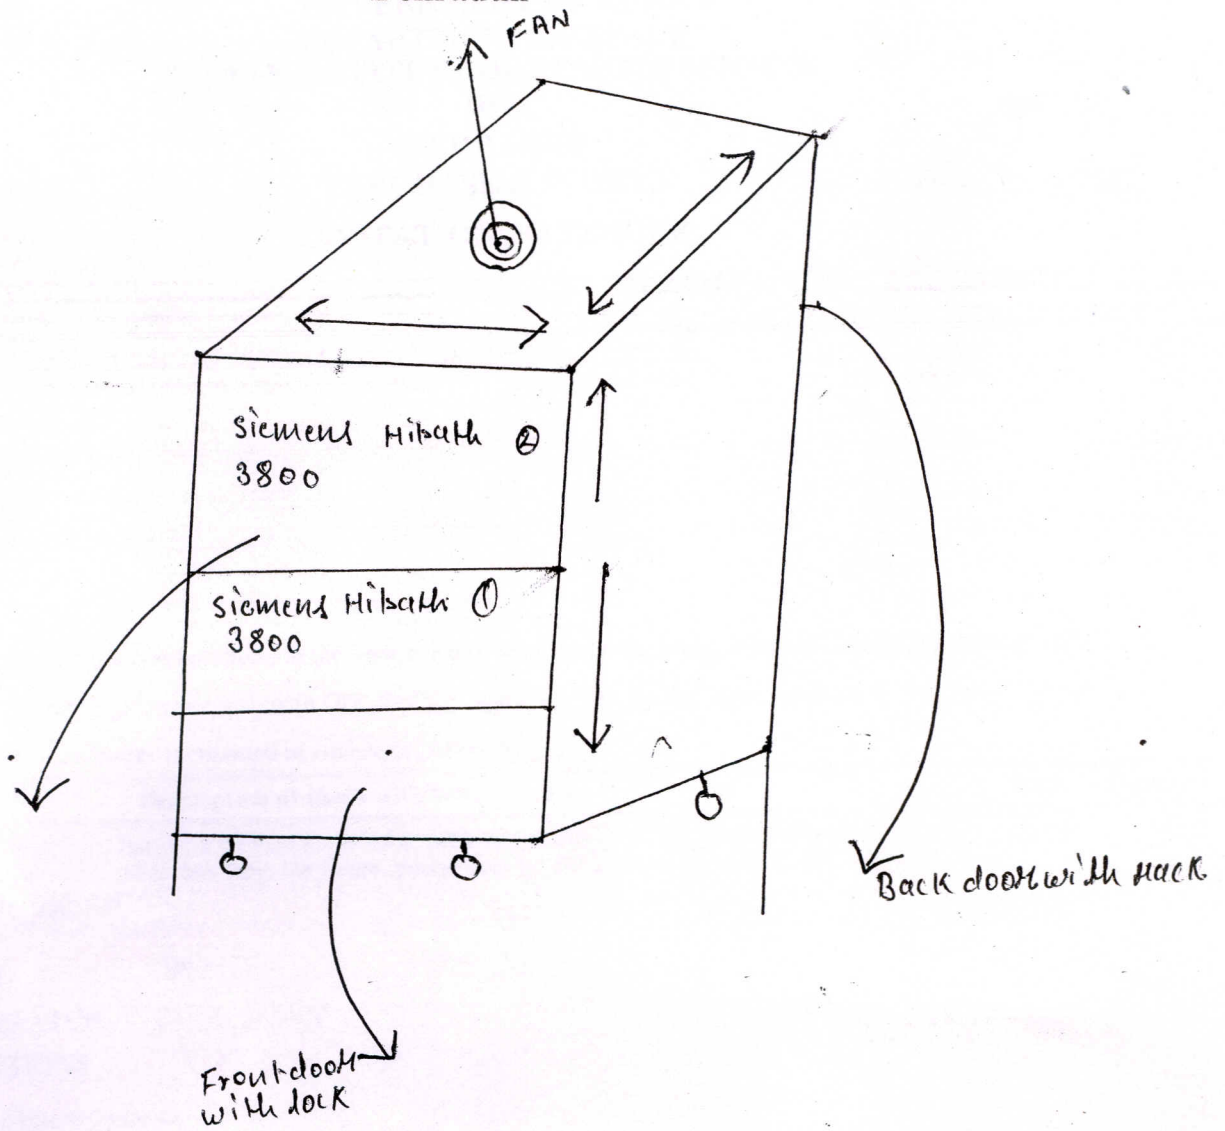 FAN
Siemens Hipath ②
3800
Siemens Hipath ①
3800
Back door with rack
Front door
with lock